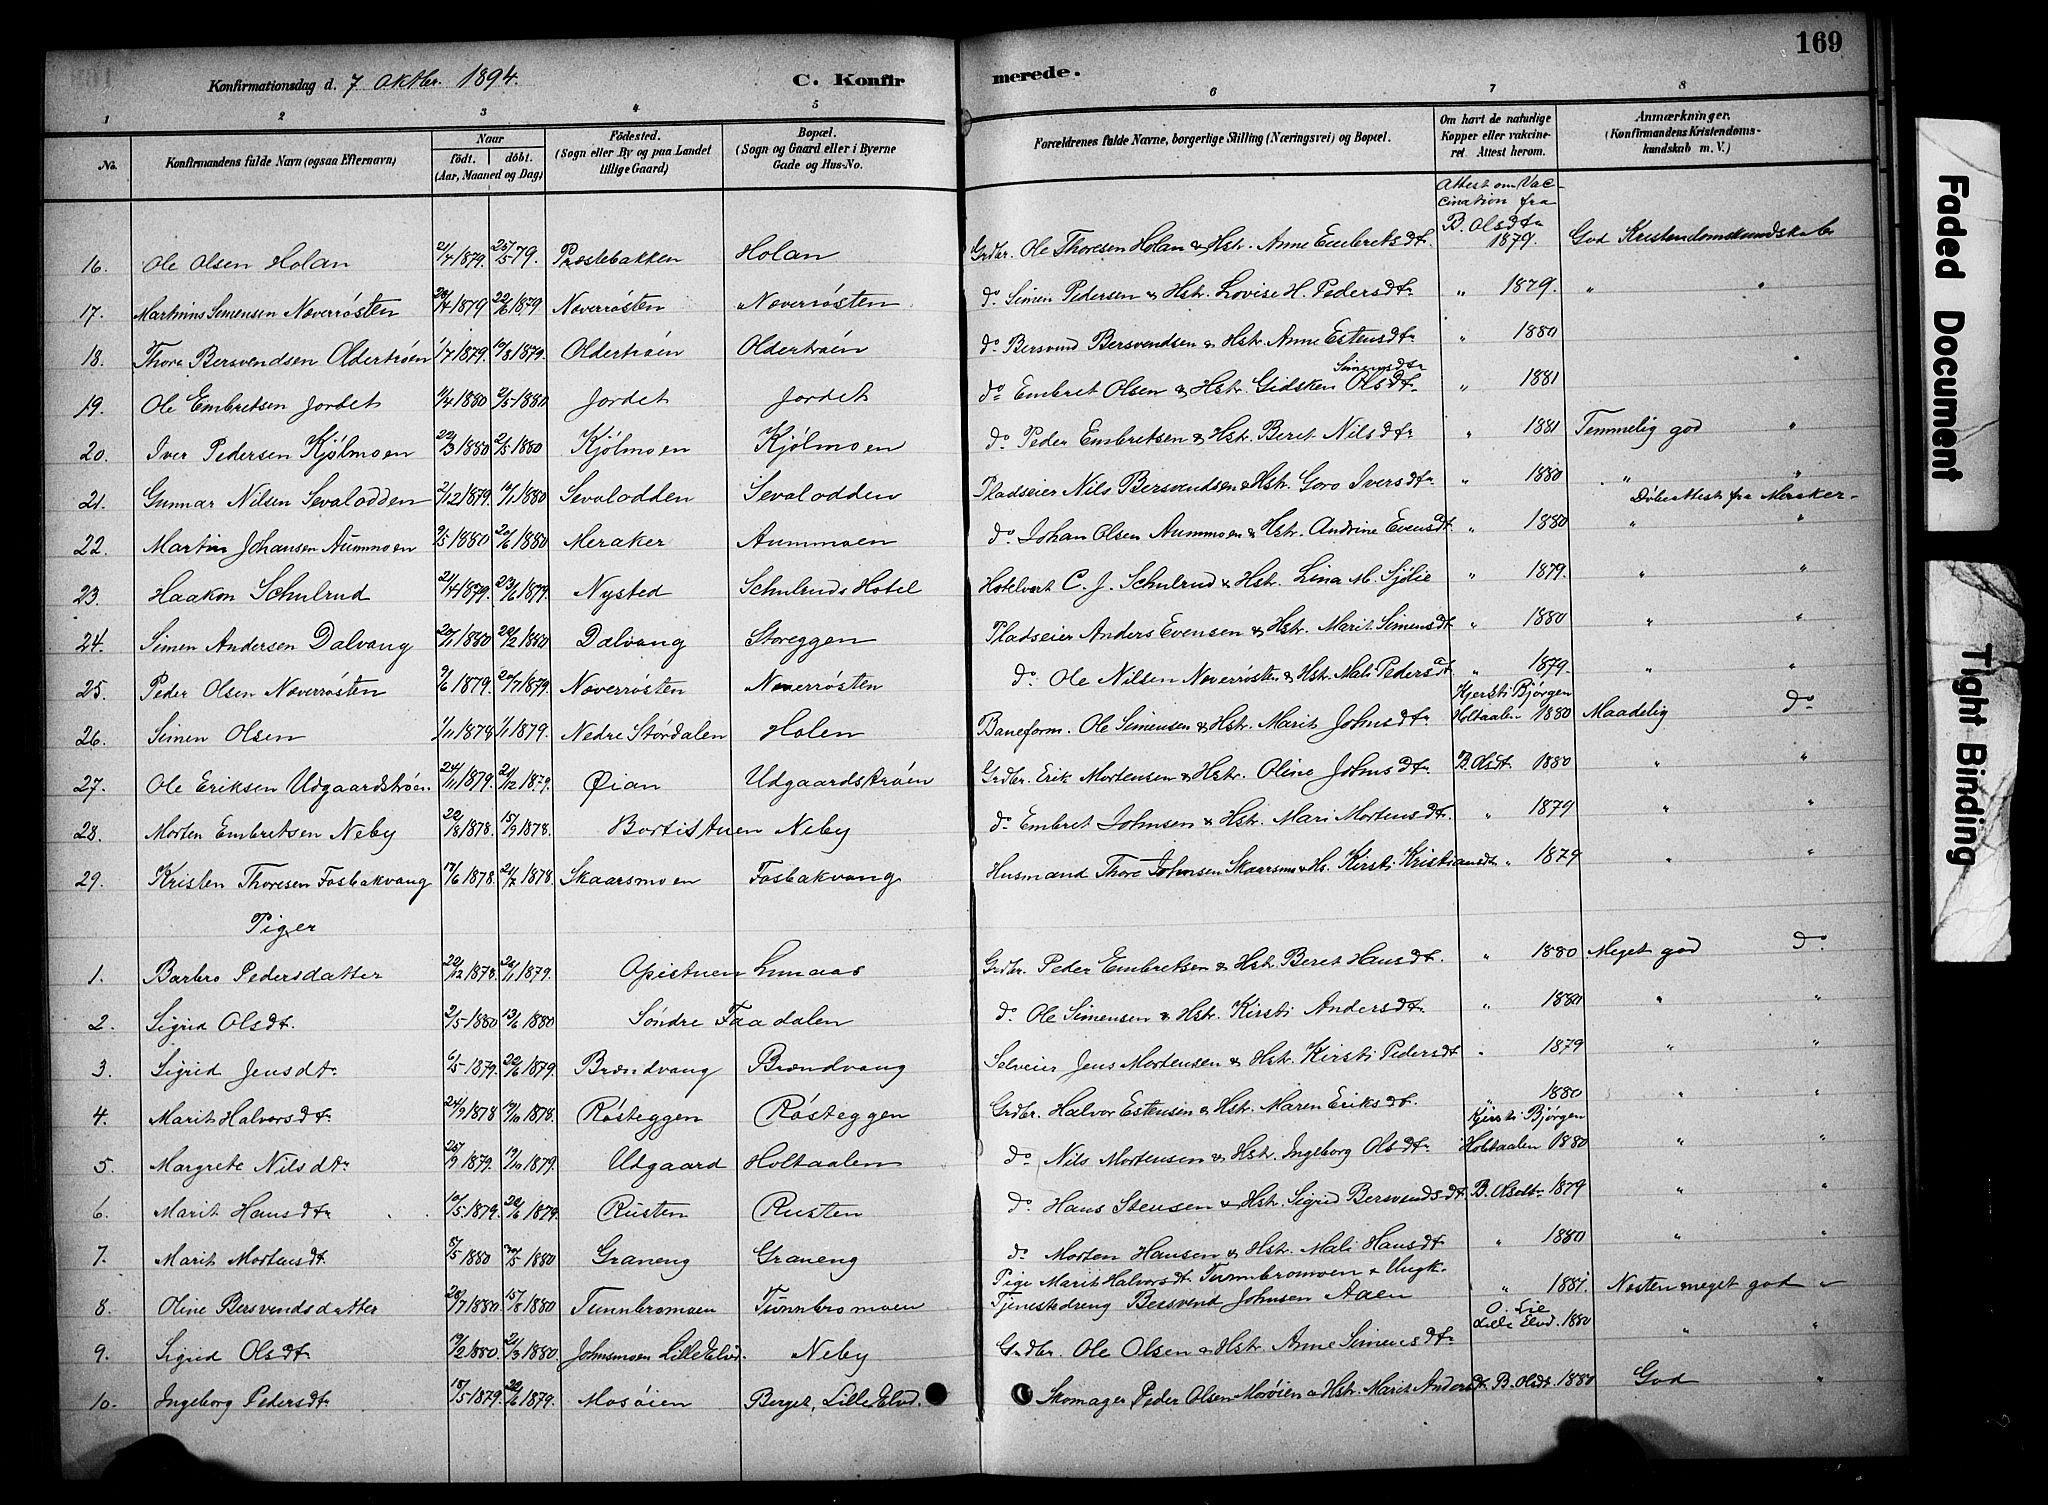 169
Konfirmationsdag d. 7 Oktbr. 1894.
C. Konfirmerede.
1 2 3 4 5 6 7 8
No. Konfirmandens fulde Navn (ogsaa Efternavn)
Naar født. døbt. (Aar, Maaned og Dag)
Födested. (Sogn eller By og paa Landet tillige Gaard)
Bopæl. (Sogn og Gaard eller i Byerne Gade og Hus-No.
Forældrenes fulde Navne, borgerlige Stilling (Næringsvei) og Bopæl.
Om havt de naturlige Kopper eller vakcineret. Attest herom.
Anmærkninger. (Konfirmandens Kristendomskundskab m. V.)
Attest om Vaccination fra
16. Ole Olsen Holan 21/4 1879. 25/5 79. Præstebakken Holan Grdbr. Ole Thoresen Holan & Hstr. Anne Embretsdtr. B. Olsdtr 1879. God Kristendomskundskab
17. Martinus Simensen Næverrösten 1879 22/6 1879 Næverrösten Næverrösten do. Simen Pedersen & Hstr. Lovise H. Pedersdtr " 1879. " "
18. Thore Bersvendsen Oldertröen 1/7 1879. 10/8 1879. Oldertröen Oldertröen do. Bersvend Bersvendsen & Hstr. Anne Estensdtr " 1880 "
19. Ole Embretsen Jordet 4/4 1880 2/5 1880 Jordet Jordet do Embret Olsen & Hstr. Gidsken Olsdtr. Simensdtr " 1881
20. Iver Pedersen Kjölmoen 22/3 1880 2/5 1880 Kjölmoen Kjölmoen do Peder Embretsen & Hstr. Beret Nilsdtr " 1881 Temmelig god "
21. Gunnar Nilsen Sevalodden 2/12 1879. 1/1 1880 Sevalodden Sevalodden Pladseier Nils Bersvendsen & Hstr. Goro Iversdtr " 1880 " "
Döbeattest fra Meraker.
22. Martin Johansen Aummoen 2/5 1880 20/6 1880 Meraker Aummoen do. Johan Olsen Aummoen & Hstr. Andrine Evensdt. " 1880 " "
23. Haakon Schulrud 21/4 1879. 23/6 1879. Nysted Schulruds Hotel Hotelvert C. J. Schulrud & Hstr. Lina M. Sjölie " 1879. " "
24. Simen Andersen Dalvang 20/1 1880 29/2 1880 Dalvang Storeggen Pladseier Anders Evensen & Hstr. Marit Simensdt " 1880 " "
25. Peder Olsen Næverrösten 9/6 1879. 20/7 1879. Næverrösten Næverrösten do. Ole Nilsen Næverrösten & Hstr. Mali Pedersdt " 1879. " "
26. Simen Olsen 1/11 1878 1/1 1879. Nedre Stördalen Holen Baneform. Ole Simensen & Hstr. Marit Johnsdtr Kjersti Bjørgen Holtaalen 1880 Maadelig do
27. Ole Eriksen Udgaardströen. 24/11 1879. 21/12 1879. Øian Udgaardströen Grdbr. Erik Mortensen & Hstr. Oline Johnsdtr. B. Olsdt. 1880 " "
28. Morten Embretsen Neby 22/8 1878. 15/9 1878. Bortistuen Neby do. Embret Johnsen & Hstr. Mari Mortensdt. " 1879 " "
29. Kristen Thoresen Fosbakvang 17/6 1878. 21/7 1878. Skaarsmoen Fosbakvang Husmand Thore Johnsen Skaarsmo & Hs. Kirsti Kristiansdt " 1879 " "
Piger
1. Barbro Pedersdatter 22/12 1878. 26/1 1879. Opistuen Lunaas Grdbr. Peder Embretsen & Hstr. Beret Hansdt. " 1880 Meget god do.
2. Sigrid Olsdt. 2/5 1880 13/6 1880 Söndre Faadalen do. Ole Simensen & Hstr. Kirsti Andersdtr " 1880 " "
3. Sigrid Jensdtr 6/5 1879. 22/6 1879. Brændvang Brændvang Selveier Jens Mortensen & Hstr. Kirsti Pedersdt " 1879 " "
4. Marit Halvorsdtr 24/9 1878 1878. Rösteggen Rösteggen Grdbr. Halvor Estensen & Hstr. Maren Eriksdt. " 1880 " "
5. Margrete Nilsdtr 25/9 1879. 19/10 1879. Udgaard Holtaalen do Nils Mortensen & Hstr. Ingeborg Olsdtr Kirsti Bjørgen Holtaalen 1880 " "
6. Marit Hansdtr 10/5 1879. 22/6 1879. Rusten Rusten do. Hans Stensen & Hstr. Sigrid Bersvendsdt. B. Olsdtr 1879 " "
7. Marit Mortensdt 8/5 1880 30/5 1880 Graneng Graneng do Morten Hansen & Hstr. Mali Hansdt " 1880 " "
8. Oline Bersvendsdatter 28/7 1880. 15/8 1880 Tunnbromoen Tunnbromoen Pige Marit Halvorsdt. Tunnbromoen & Ungk. Tjenestedreng Bersvend Johnsen Aaen " 1881. Næsten meget god "
9. Sigrid Olsdtr 19/2 1880. 21/3 1880. Johnsmoen Lille Elvd. Neby Grdbr. Ole Olsen & Hstr. Anne Simensdtr O. Lie Lille Elvd. 1880 " "
10. Ingeborg Pedersdtr 18/5 1879. 22/6 1879. Mosöien Berget, Lille Elvd. Skomager Peder Olsen Mosöien & Hstr. Marit Andersdt. B. Olsdt. 1880 God "
Faded Document
Tight Binding